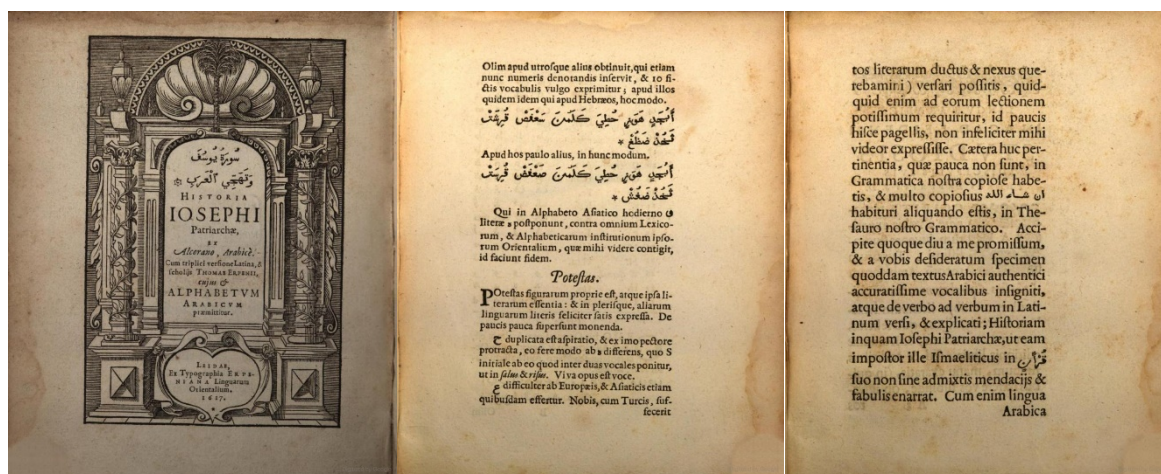 سُورَةُ يُوسُفَ
وَتَهَجِّي ٱلْعَرَبِ
HISTORIA
IOSEPHI
Patriarchæ,
ex
Alcorano, Arabicè.
Cum triplici versione Latina, &
scholijs THOMÆ ERPENII,
cujus &
ALPHABETVM
ARABICVM
præmittitur.
LEIDAE,
Ex Typographia ERPE-
NIANA Linguarum
Orientalium.
1617.
Olim apud utrosque alius obtinuit, qui etiam
nunc numeris denotandis inservit, & 10 fi-
ctis vocabulis vulgo exprimitur; apud illos
quidem idem qui apud Hebræos, hoc modo.
أَبْجَدٍ هَوَزٍ حُطِيَ كَلَمَنَ سَعْفَصْ قُرِشَتْ
ثَخَذْ ضَظَغْ *
Apud hos paulo alius, in hunc modum.
أَبْجَدٍ هَوَزٍ حُطِيَ كَلَمَنَ صَعْفَضْ قُرِسَتْ
ثَخَذْ ظَغَشْ *
Qui in Alphabeto Asiatico hodierno و
literæ ه postponunt, contra omnium Lexico-
rum, & Alphabeticarum institutionum ipso-
rum Orientalium, quæ mihi videre contigit,
id faciunt fidem.
Potestas.
POtestas figurarum proprie est, atque ipsa li-
terarum essentia: & in plerisque, aliarum
linguarum literis feliciter satis expressa. De
paucis pauca supersunt monenda.
ح duplicata est aspiratio, & ex imo pectore
protracta, eo fere modo ab ه differens, quo S
initiale ab eo quod inter duas vocales ponitur,
ut in salus & risus. Viva opus est voce.
ع difficulter ab Europæis, & Asiaticis etiam
quibusdam effertur. Nobis, cum Turcis, suf-
fecerit
tos literarum ductus & nexus que-
rebamini) versari possitis, quid-
quid enim ad eorum lectionem
potissimum requiritur, id paucis
hisce pagellis, non infeliciter mihi
videor expressisse. Cætera huc per-
tinentia, quæ pauca non sunt, in
Grammatica nostra copiose habe-
tis, & multo copiosius ان شاء الله
habituri aliquando estis, in The-
sauro nostro Grammatico. Acci-
pite quoque diu a me promissum,
& a vobis desideratum specimen
quoddam textus Arabici authentici
accuratissime vocalibus insigniti,
atque de verbo ad verbum in Lati-
num versi, & explicati; Historiam
inquam Iosephi Patriarchæ, ut eam
impostor ille Ismaeliticus in قُرْآنٍ
suo non sine admixtis mendacijs &
fabulis enarrat. Cum enim lingua
Arabica